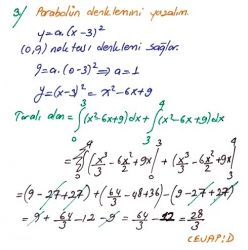 3/ Parabolün denklemini yazalım.
y=a.(x-3)²
(0,9) noktası denklemi sağlar.
9=a.(0-3)² ⇒ a=1
y=(x-3)² = x²-6x+9
Taralı alan = ∫₀³(x²-6x+9)dx + ∫₃⁴(x²-6x+9)dx
= ∫₀³(x³/3 - 6x²/2 + 9x) + ∫₃⁴(x³/3 - 6x²/2 + 9x)
= (9-27+27) + (64/3 - 48+36) - (9-27+27)
= 9 + 64/3 - 12 - 9 = 64/3 - 12 = 28/3
CEVAP: D